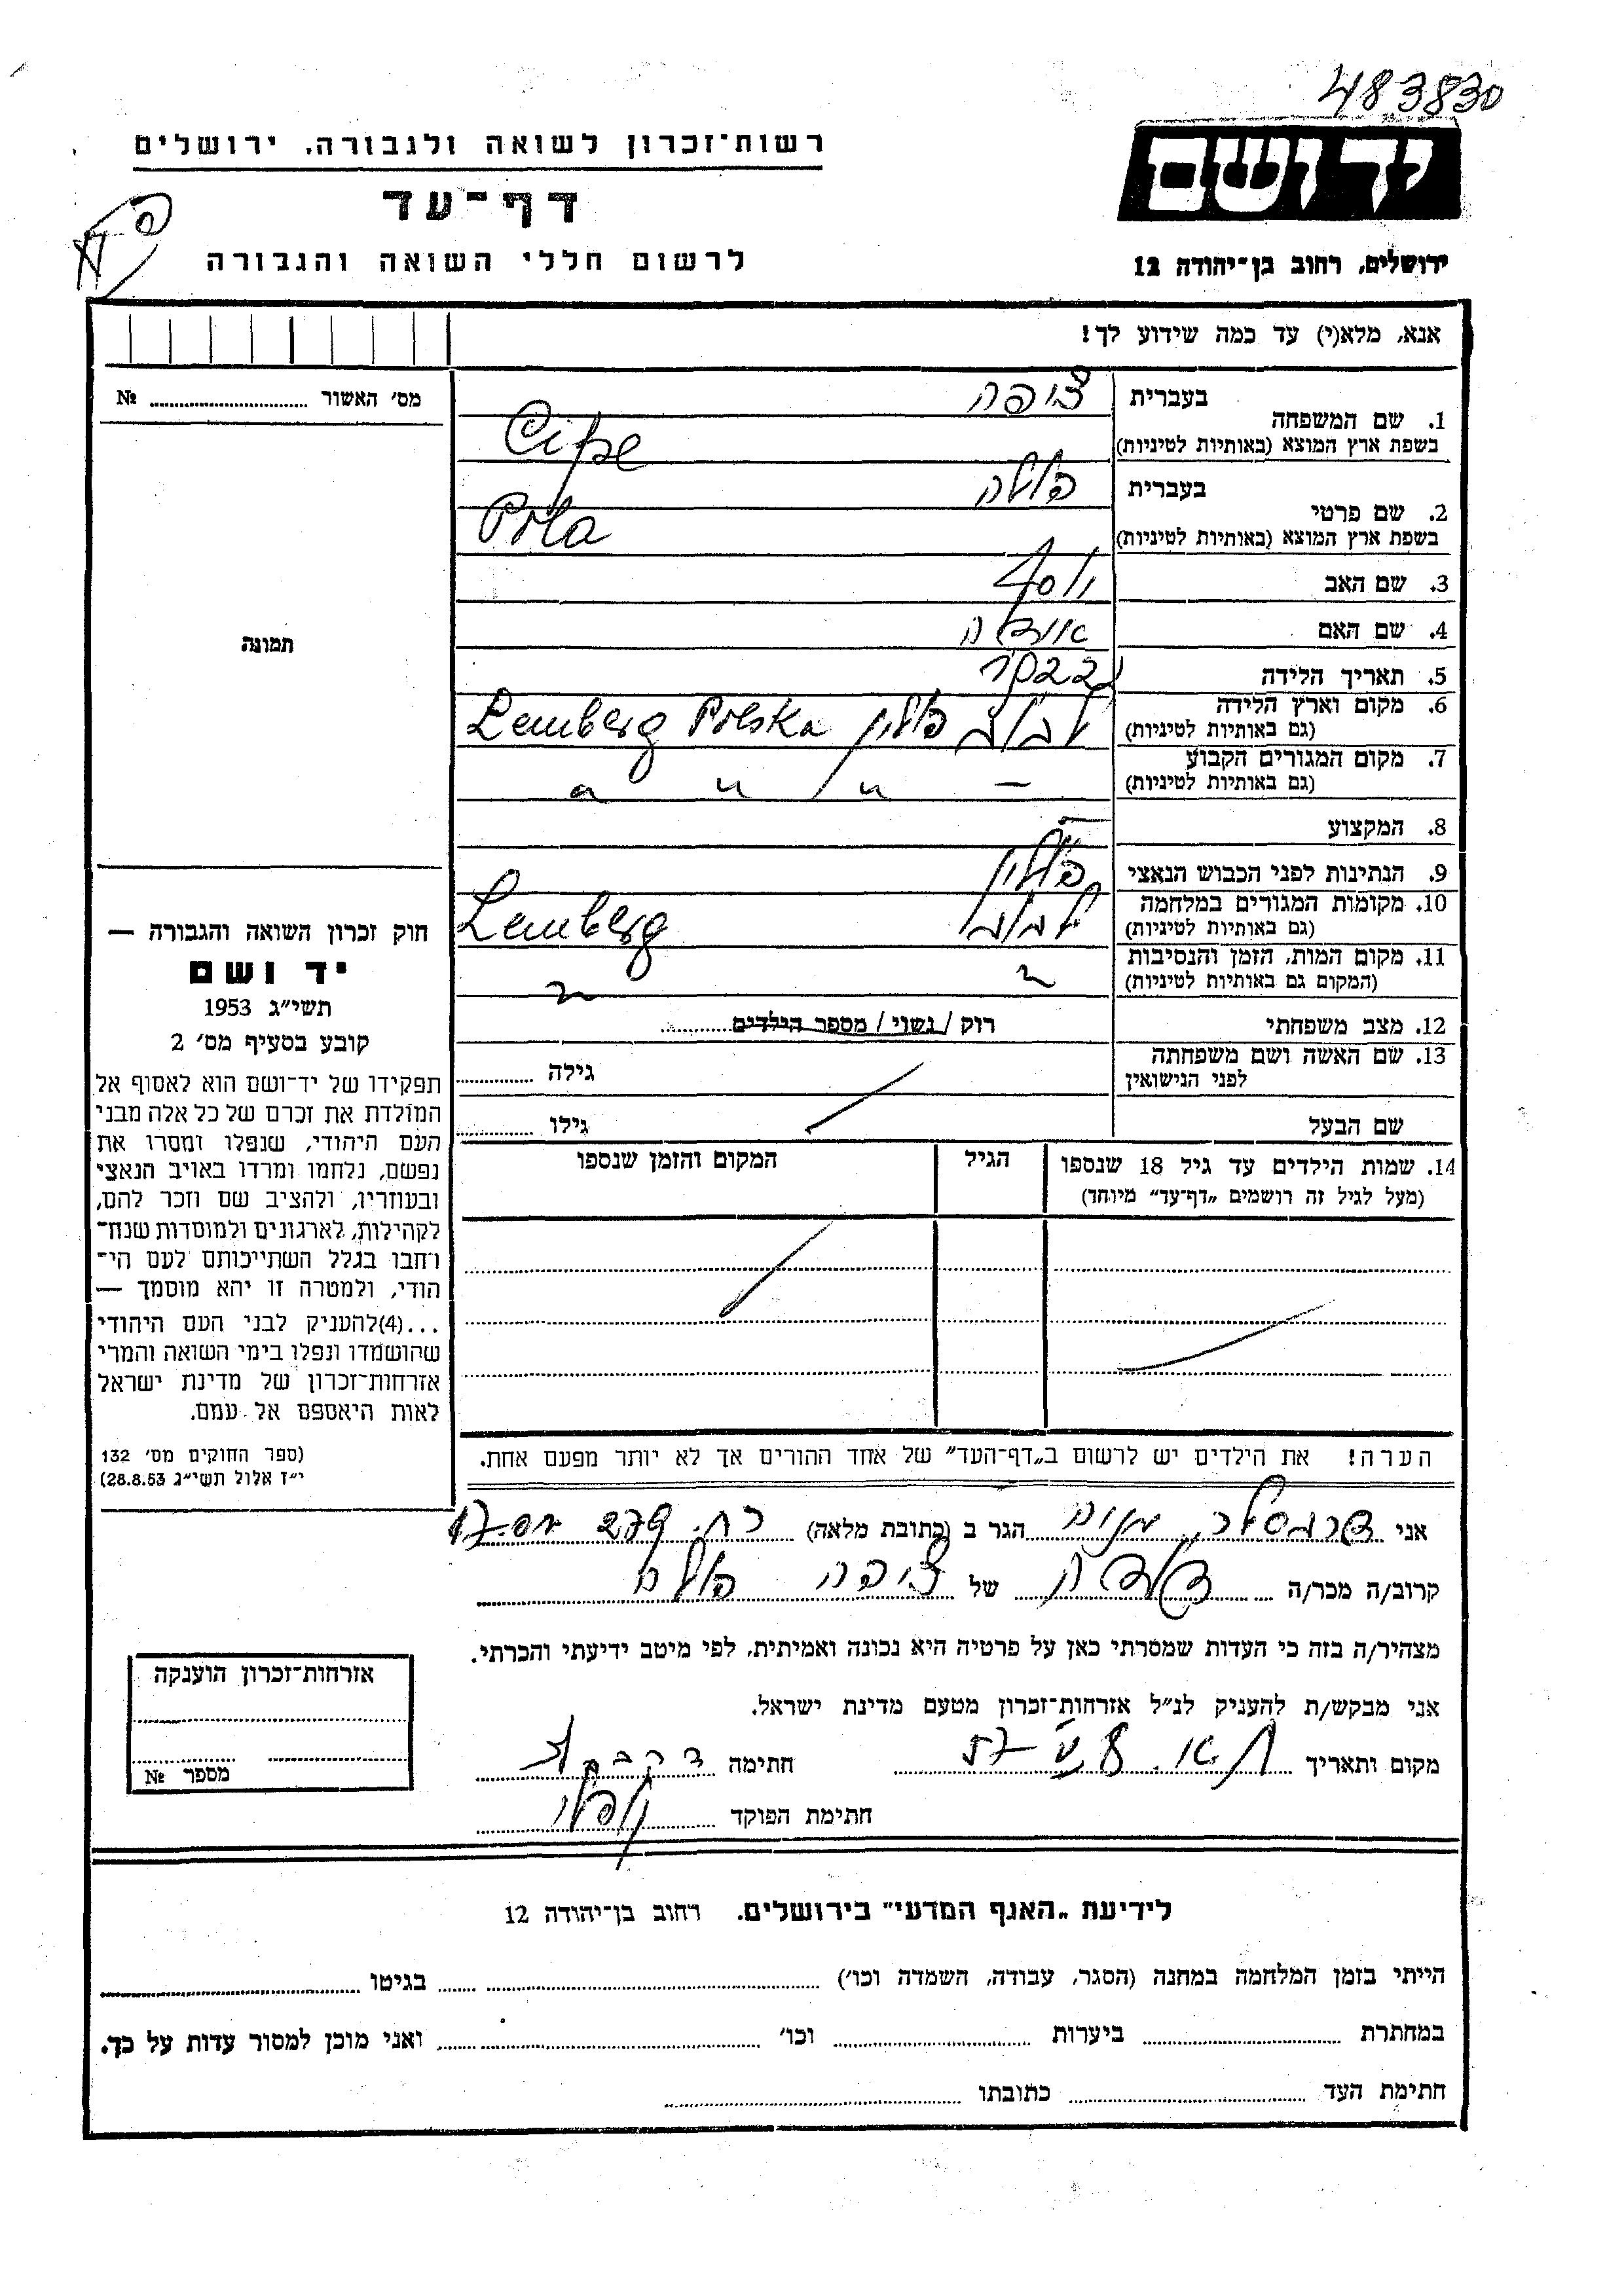 483830
רשות־זכרון לשואה ולגבורה, ירושלים
דף־עד
לרשום חללי השואה והגבורה
יד ושם
ירושלים, רחוב בן־יהודה 12
אנא, מלא(י) עד כמה שידוע לך!
מס׳ האשור № 
תמונה
1. שם המשפחה
בעברית ציפה
בשפת ארץ המוצא (באותיות לטיניות) Cipe
2. שם פרטי
בעברית פולה
בשפת ארץ המוצא (באותיות לטיניות) Pola
3. שם האב
4. שם האם
5. תאריך הלידה 1922
6. מקום וארץ הלידה
(גם באותיות לטיניות) לבוב פולין Lemberg Polska
7. מקום המגורים הקבוע
(גם באותיות לטיניות) — " " "
8. המקצוע —
9. הנתינות לפני הכבוש הנאצי פולין
10. מקומות המגורים במלחמה
(גם באותיות לטיניות) לבוב Lemberg
11. מקום המות, הזמן והנסיבות
(המקום גם באותיות לטיניות)
12. מצב משפחתי רוק / נשוי / מספר הילדים
13. שם האשה ושם משפחתה
לפני הנישואין גילה
שם הבעל גילו
14. שמות הילדים עד גיל 18 שנספו הגיל המקום והזמן שנספו
(מעל לגיל זה רושמים „דף־עד״ מיוחד)
הערה! את הילדים יש לרשום ב„דף־העד״ של אחד ההורים אך לא יותר מפעם אחת.
חוק זכרון השואה והגבורה —
יד ושם
תשי״ג 1953
קובע בסעיף מס׳ 2
תפקידו של יד־ושם הוא לאסוף אל
המולדת את זכרם של כל אלה מבני
העם היהודי, שנפלו ומסרו את
נפשם, נלחמו ומרדו באויב הנאצי
ובעוזריו, ולהציב שם וזכר להם,
לקהילות, לארגונים ולמוסדות שנח־
רחבו בגלל השתייכותם לעם הי־
הודי, ולמטרה זו יהא מוסמך —
...(4)להעניק לבני העם היהודי
שהושמדו ונפלו בימי השואה והמרי
אזרחות־זכרון של מדינת ישראל
לאות היאספם אל עמם.
(ספר החוקים מס׳ 132
י״ז אלול תשי״ג 28.8.53)
אני הגר ב (כתובת מלאה) רח. 279
קרוב/ה מכר/ה דודה של ציפה פולה
מצהיר/ה בזה כי העדות שמסרתי כאן על פרטיה היא נכונה ואמיתית, לפי מיטב ידיעתי והכרתי.
אני מבקש/ת להעניק לנ״ל אזרחות־זכרון מטעם מדינת ישראל.
מקום ותאריך חתימה
חתימת הפוקד
אזרחות־זכרון הוענקה
מספר №
לידיעת „האגף המדעי״ בירושלים. רחוב בן־יהודה 12
הייתי בזמן המלחמה במחנה (הסגר, עבודה, השמדה וכו׳) בגיטו
במחתרת ביערות וכו׳ ואני מוכן למסור עדות על כך.
חתימת העד כתובתו